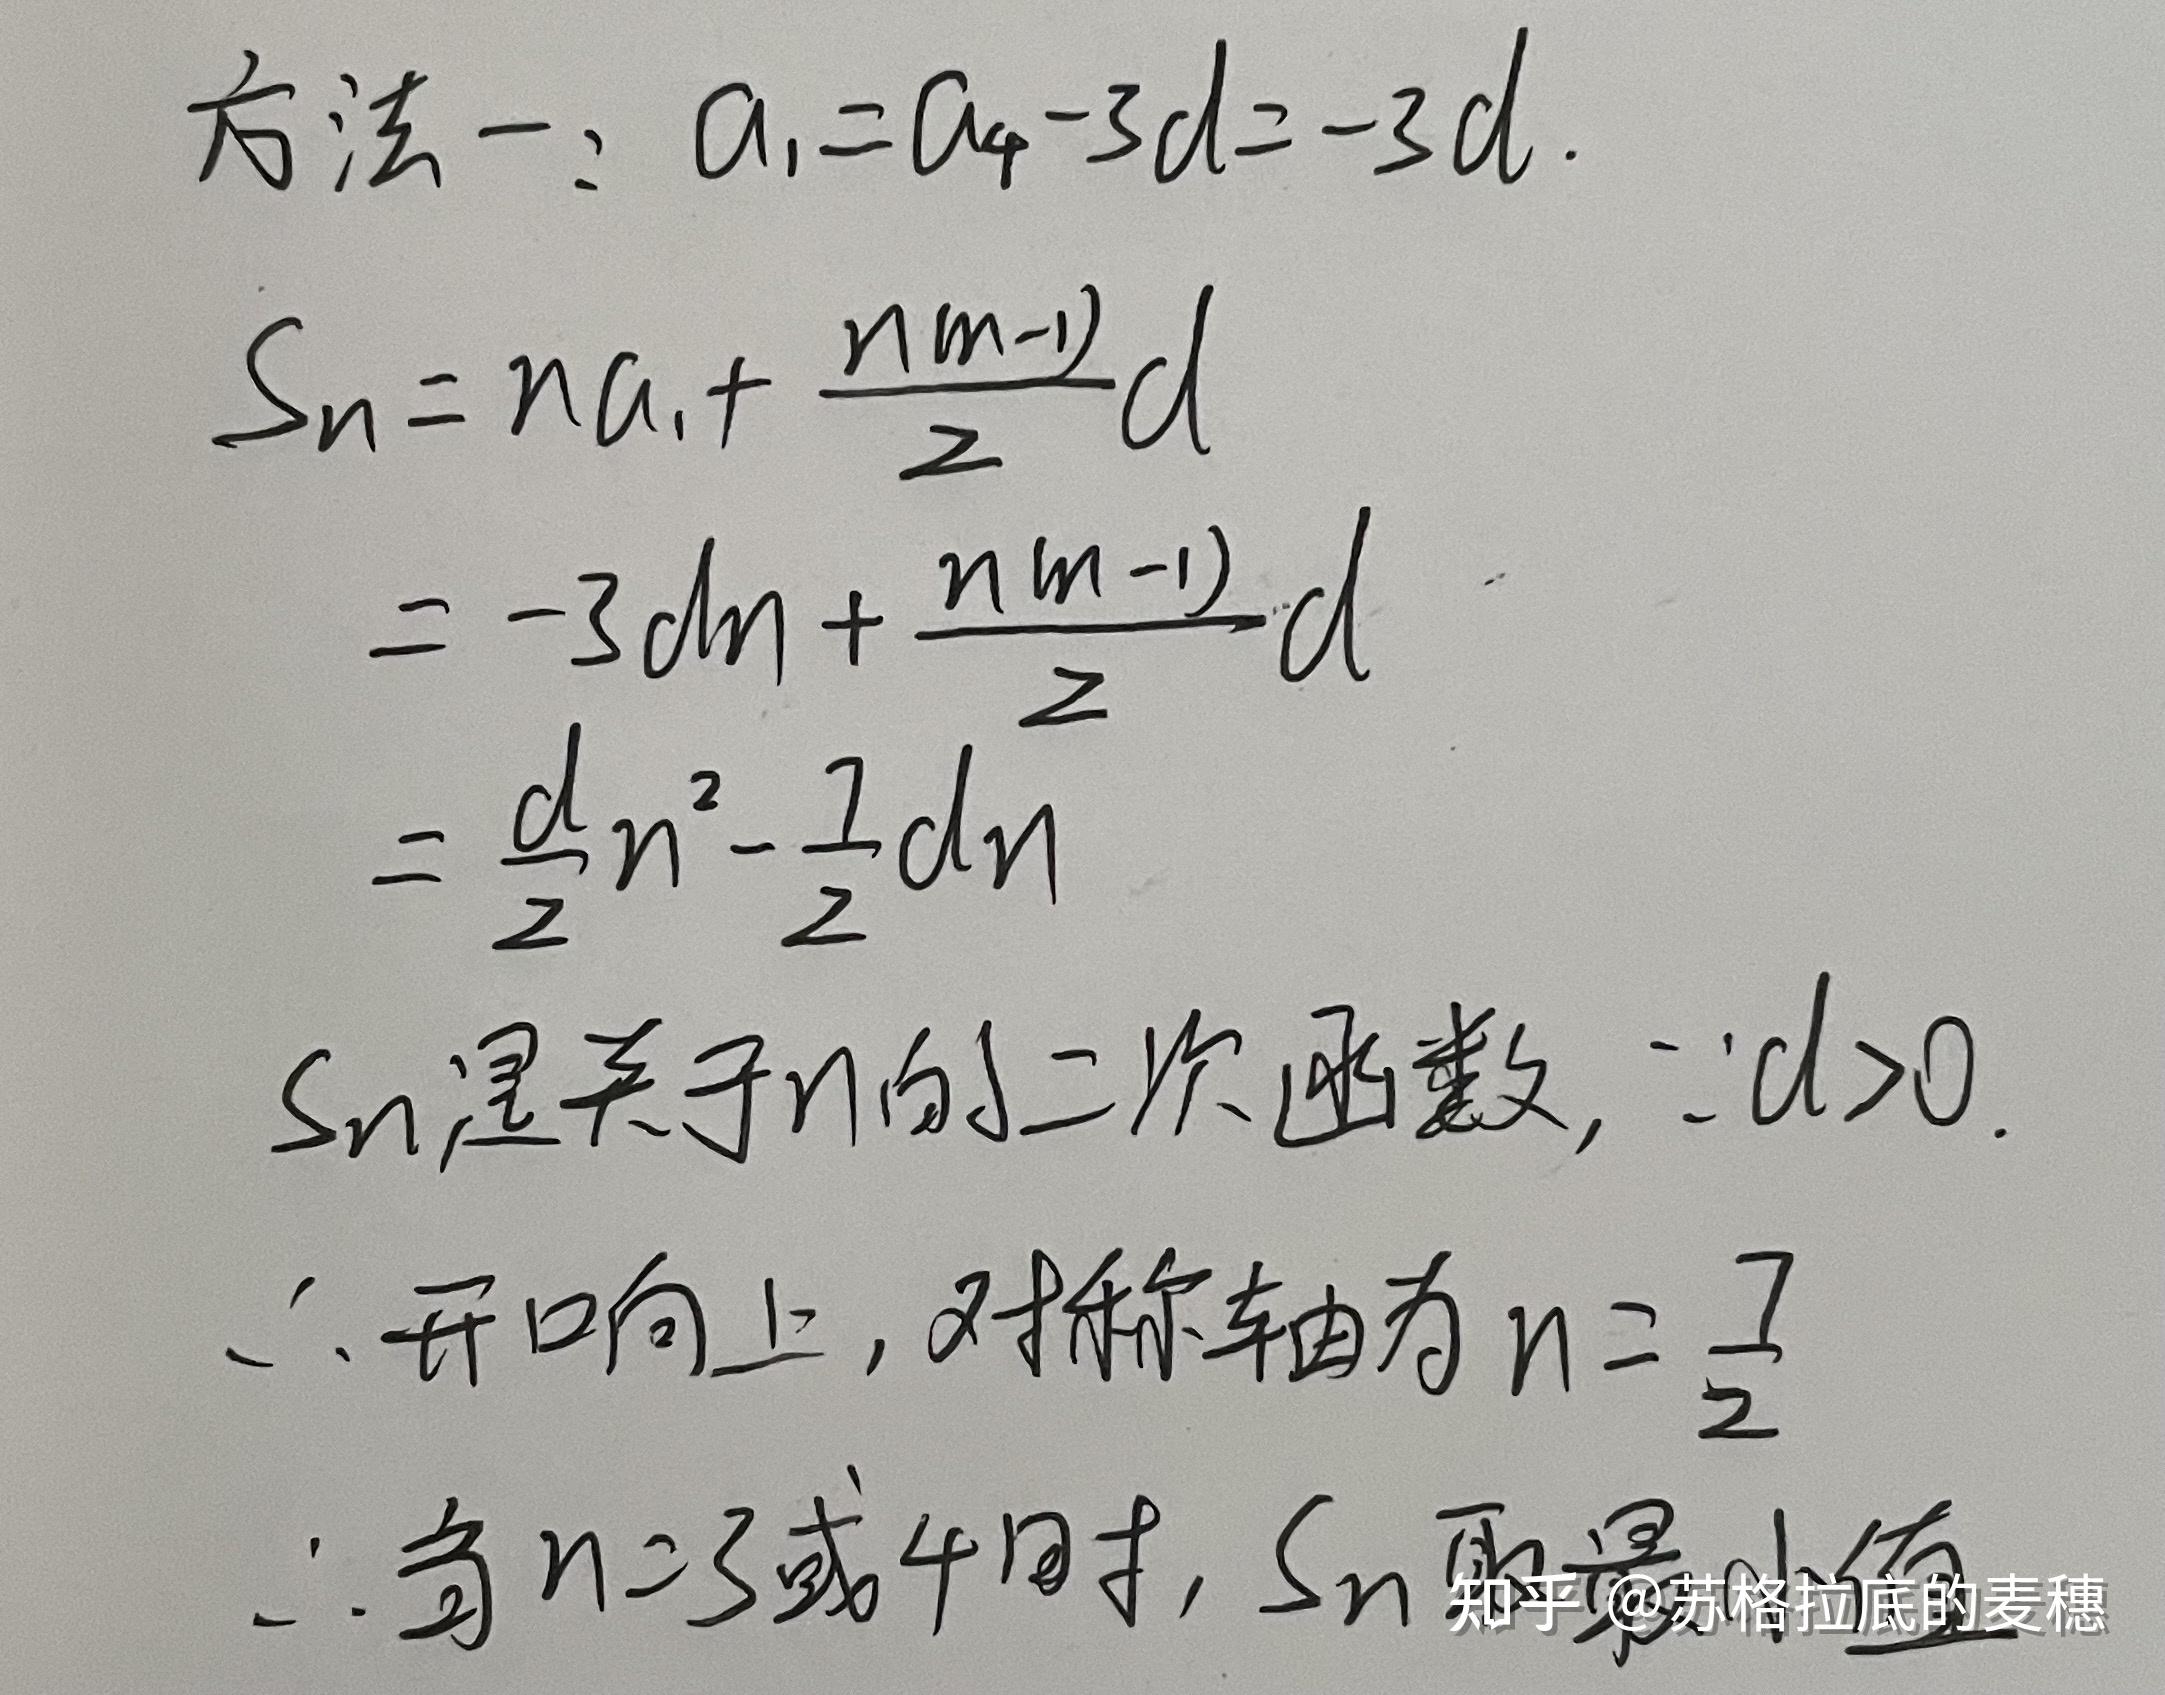 方法一：a₁=a₄-3d=-3d.
Sn=na₁+n(n-1)/2 d
=-3dn+n(n-1)/2 d
=d/2 n²-7/2 dn
Sn是关于n的二次函数,∵d>0.
∴开口向上,对称轴为n=7/2
∴当n=3或4时,Sn取最小值
知乎 @苏格拉底的麦穗